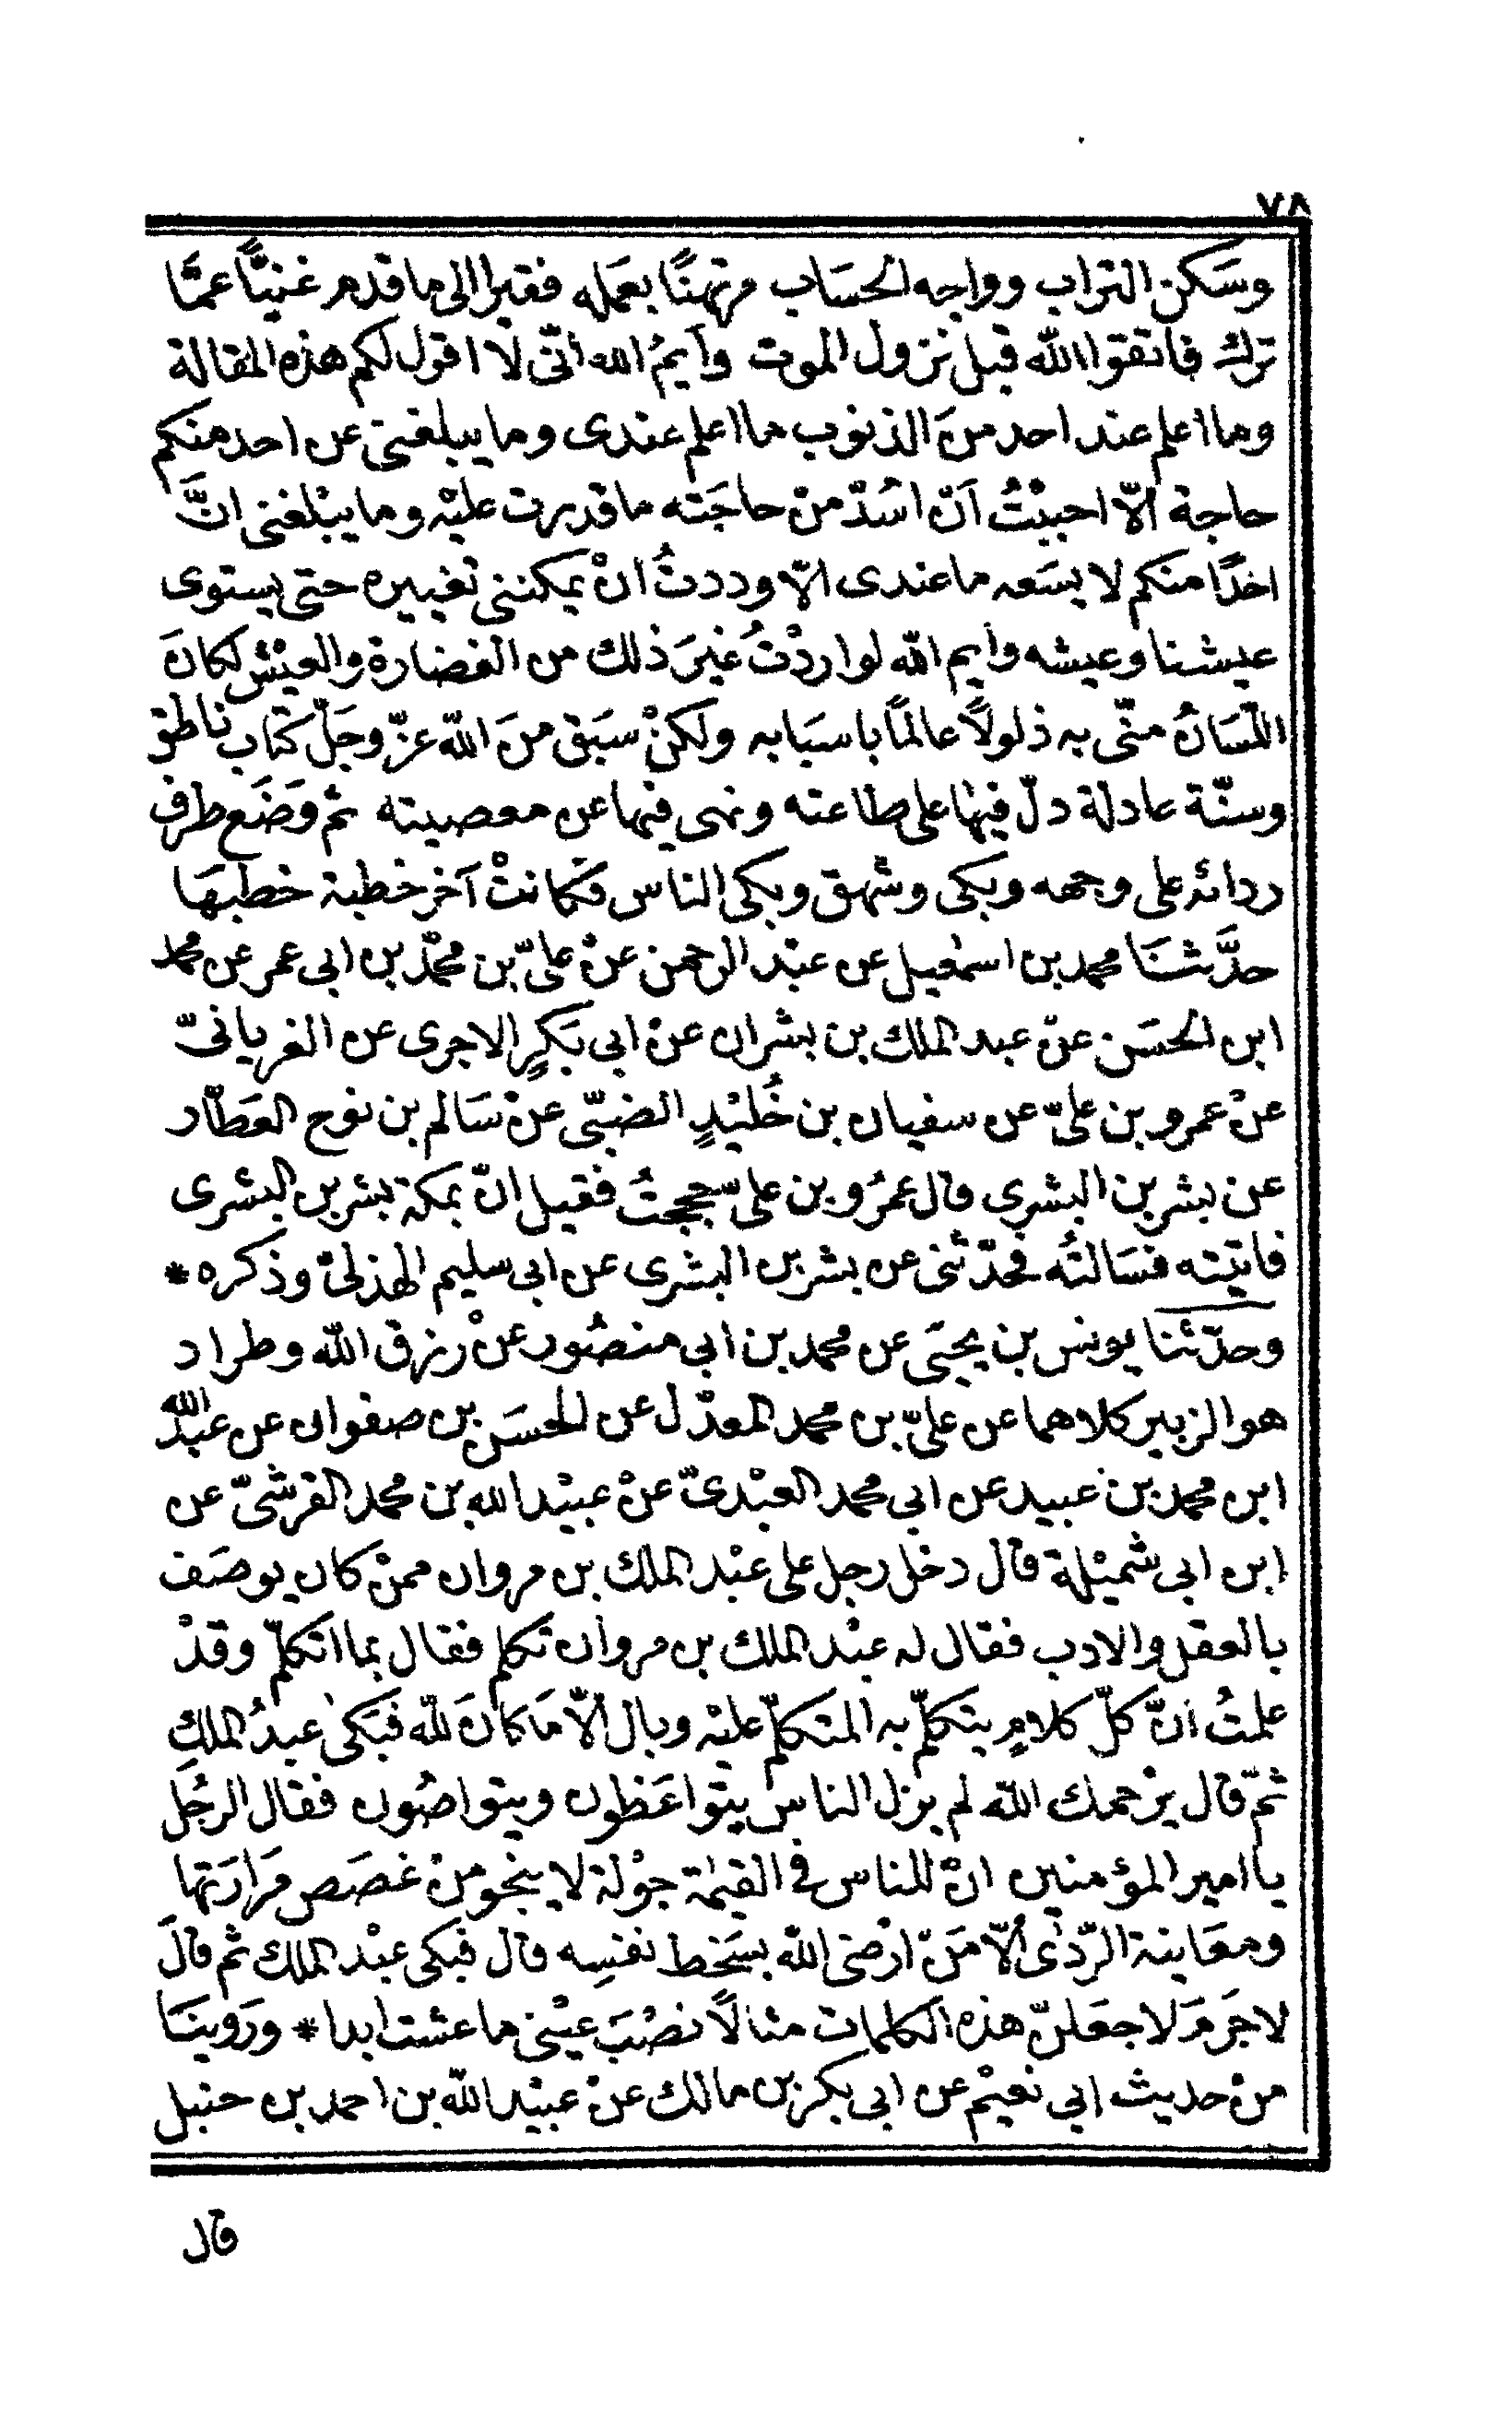 ٧٨
وسَكن التراب وواجه الحسَاب مرتهنًا بعَمله فقيرا الى ما قدم غنيًّا عمَّا
ترك فاتقوا الله قبل نزول الموت وآيمُ الله انّى لا اقول لكم هذه المقالة
وما اعلم عند احد منَ الذنوب ما اعلم عندى وما يبلغنى عن احد منكم
حاجة الّا احببْتُ آنْ اسُدّ منْ حاجَته ما قدرت عليْه وما يبْلغنى انَّ
احدًا منكم لا يسَعه ما عندى الّا وددتُ انْ يمكننى تغييره حتى يستوى
عيشنا وعيشه وايم الله لو اردْتُ غيْرَ ذلك من الغضارة والعيْش لكانَ
اللّسَانُ منّى به ذلولًا عالمًا باسبَابه ولكنْ سبَق منَ الله عزّ وجَلّ كتاب ناطق
وسنّة عادلة دلّ فيْها على طاعته ونهى فيها عن معصيته ثم وَضَع طرف
ردائه على وجهه وبكى وشهق وبكى الناس فكانتْ آخر خطبة خطبهَا
حدَّثنَا محمد بن اسمٰعيل عن عبْد الرحمن عنْ علىّ بن محمّد بن ابى عمر عن محمد
ابن الحسَن عنْ عبد الملك بن بشران عنْ ابى بَكرٍ الاجرى عن الفريانىّ
عنْ عمرو بن علىّ عن سفيان بن خُليْدٍ الضبّى عنْ سَالم بن نوح العَطّار
عن بشر بن البشرى قال عمرُو بن علىّ حججتُ فقيل انّ بمكة بشر بن البشرى
فاتيْته فسَالتُه فحدّثنى عن بشر بن البشرى عن ابى سليم الهذلىّ وذكره *
وحدّثنا يونس بن يحيَى عن محمد بن ابى منصُور عنْ رزق الله وطراد
هو الزبير كلاهما عن علىّ بن محمد المعدّل عن الحسَن بن صفوان عن عبْد الله
ابن محمد بن عبيد عن ابى محمد العبْدىّ عنْ عبيْد الله بن محمد القرشىّ عن
ابن ابى شميْلة قال دخل رجل على عبْد الملك بن مروان ممنْ كان يوصَف
بالعقل والادب فقال له عبْد الملك بن مروان تكلم فقال بما اتكلّم وقدْ
علمتُ انّ كلّ كلامٍ يتكلّم به المتكلّم عليْه وبال الّا مَا كانَ لله فبَكىٰ عبدُ الملكِ
ثمّ قال يرْحمك الله لم يزل الناس يتواعَظون ويتواصُون فقال الرجُل
يا امير المؤمنين انّ للناس فى القيٰمة جوْلة لا ينجو منْ غصَص مَرارَتها
ومعَاينة الرّدٰى الّا مَنْ ارْضى الله بسَخط نفسِه قال فبكى عبْد الملك ثم قالَ
لا جَرمَ لاجعَلنّ هذه الكلمات مثالًا نصْبَ عيْنى ما عشت ابدا * ورَوينَا
منْ حديث ابى نعيْم عن ابى بكر بن مالك عنْ عبيْد الله بن احمد بن حنبل
قال